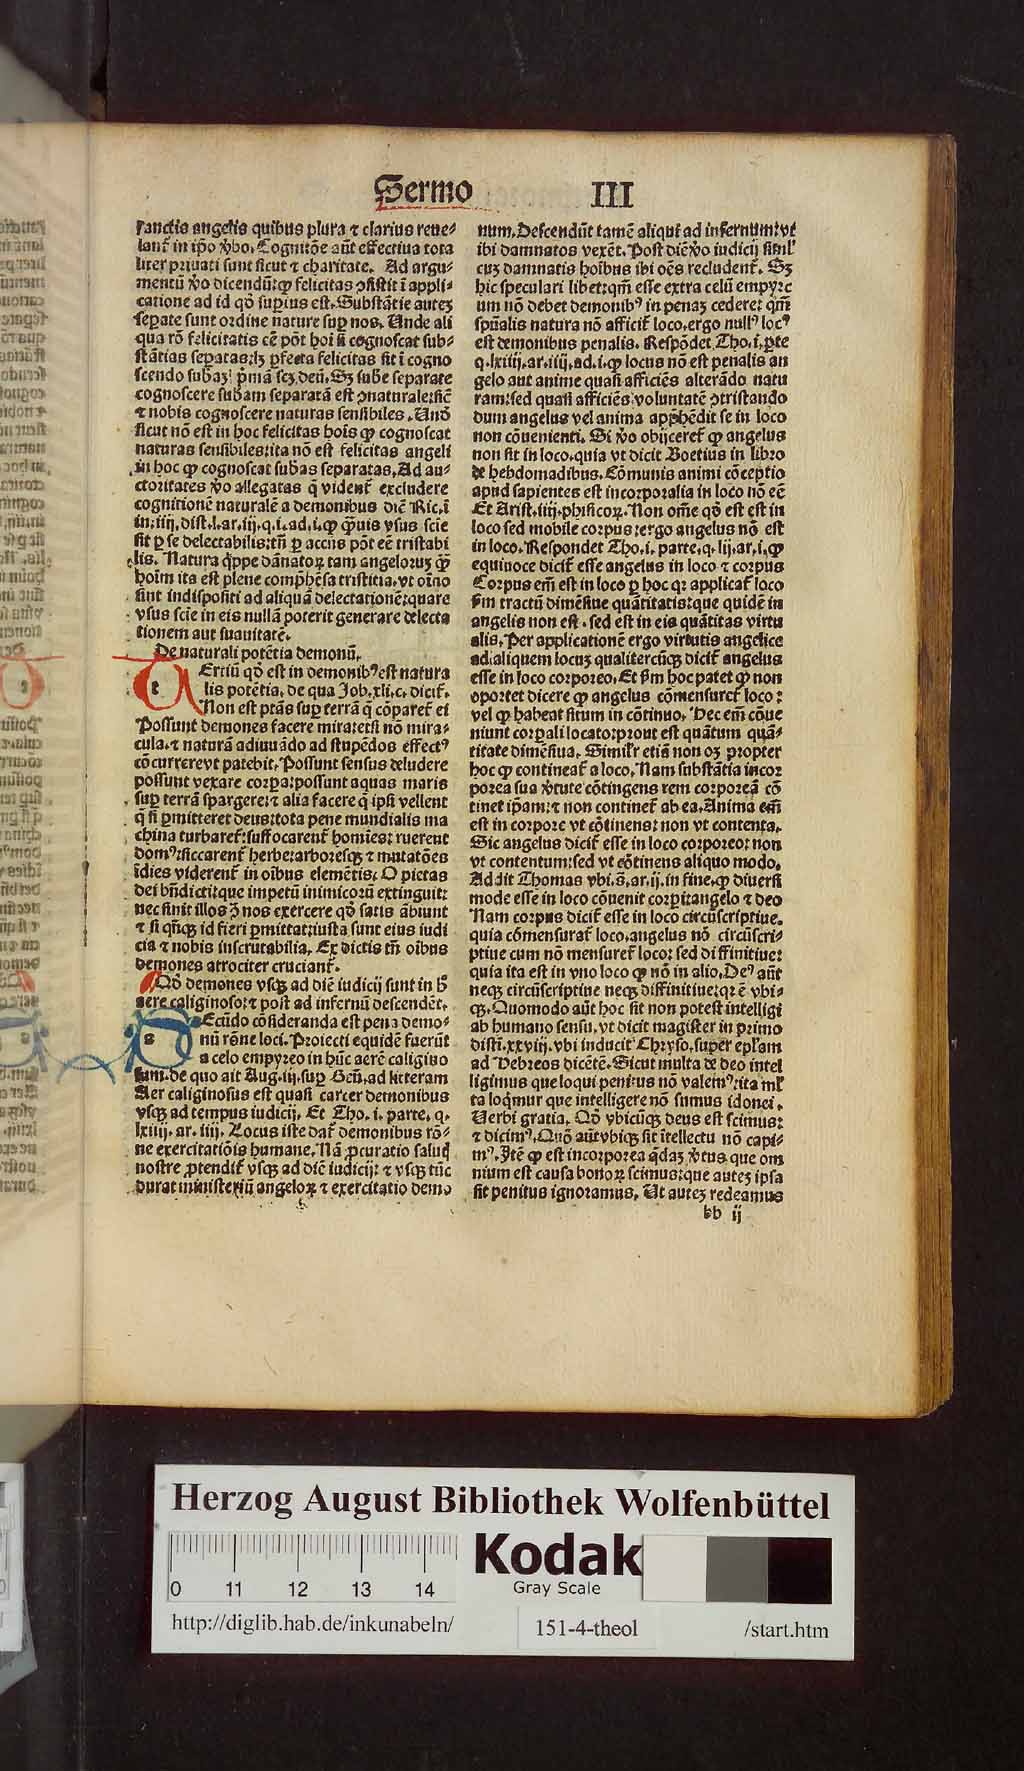 Sermo III
sanctis angelis quibus plura ⁊ clarius reue⸗
lant̃ in ip̃o v̓bo. Cognitõe aũt effectiua tota
liter priuati sunt sicut ⁊ charitate. Ad argu⸗
mentũ v̓o dicendũ: ꝙ felicitas ↄ̃sistit ĩ appli⸗
catione ad id qd̃ supius est. Substãtie autez
sepate sunt ordine nature sup nos. Unde ali
qua rõ felicitatis cẽ põt hoi si cognoscat sub⸗
stãtias sepatas: lꝫ ꝑfecta felicitas sit ĩ cogno
scendo subãꝫ pr̃imã scꝫ deũ. Sꝫ sub̃e separate
cognoscere sub̃am separatã est ↄ̃naturale: sic̃
⁊ nobis cognoscere naturas sensibiles. Uñ
sicut nõ est in hoc felicitas hoĩs ꝙ cognoscat
naturas sensibiles: ita nõ est felicitas angeli
in hoc ꝙ cognoscat sub̃as separatas. Ad au⸗
ctoritates v̓o allegatas q̃ vident̃ excludere
cognitionẽ naturalẽ a demonibus diẽ Ric. ĩ
in. iiij. dist. l. ar. iij. q. i. ad. i. ꝙ q̃uis vsus scie
sit ꝑ se delectabilis: tñ ꝑ accñs põt eẽ tristabi
lis. Natura q̃ppe dãnatoꝝ tam angelorum ꝙ̃
hoim ita est plene comp̃hẽsa tristitia. vt oĩno
sint indispositi ad aliquã delectationẽ: quare
vsus scie in eis nullã poterit generare delecta
tionem aut suauitatẽ.
De naturali potẽtia demonũ.
Ertiũ qd̃ est in demonibꝰ est natura
lis potẽtia. de qua Job. xli. c. dicit̃.
Non est ptãs sup terrã q̃ cõparet̃ ei
Possunt demones facere mira: etsi nõ mira⸗
cula. ⁊ naturã adiuuãdo ad stupẽdos effectꝰ
cõcurrere vt patebit. Possunt sensus deludere
possunt vexare corpa: possunt aquas maris
sup terrã spargere: ⁊ alia facere q̃ ipsi vellent
q̃ si ꝑmitteret deus: tota pene mundialis ma
china turbaret̃: suffocarent̃ homines: ruerent
domꝰ: siccarent̃ herbe: arboresqꝫ ⁊ mutatões
ĩdies viderent̃ in oibus elemẽtis: O pietas
dei bñdicti: que impetũ inimicorũ extinguit:
nec sinit illos ↄ̃ nos exercere qd̃ satis ãbiunt
⁊ si qñqꝫ id fieri ꝑmittat: iusta sunt eius iudi
cia ⁊ nobis inscrutabilia. Ex dictis tñ oibus
demones atrociter crucianť.
Qd̃ demones vsqꝫ ad diẽ iudicij sunt in h̃
aere caliginoso: ⁊ post ad infernũ descendẽt.
Ecũdo cõsideranda est pena demo⸗
nũ rõne loci. Proiecti equidẽ fuerũt
a celo empyreo in hũc aerẽ caligino
sum. de quo ait Aug. iij. sup Geñ. ad litteram
Aer caliginosus est quasi carcer demonibus
vsqꝫ ad tempus iudicij. Et Tho. i. parte. q.
lxiiij. ar. iiij. Locus iste dat̃ demonibus rõ⸗
ne exercitatiõis humane. Nã ꝓcuratio salut̃
nostre ꝓtendit̃ vsqꝫ ad diẽ iudicij: ⁊ vsqꝫ tũc
durat ministeriũ angeloꝝ ⁊ exercitatio demo
num. Descendũt tamẽ aliqui ad infernum: vt
ibi damnatos vexẽt. Post diẽ v̓o iudicij simĺ
cuꝫ damnatis hoĩbus ibi oẽs recludent̃. Sꝫ
hic speculari libet: qm̃ esse extra celũ empyre
um nõ debet demonibꝰ in penaꝫ cedere: qm̃
spũalis natura nõ afficit̃ loco. ergo nullꝰ locꝰ
est demonibus penalis. Respõdet Tho. i. ꝑte
q. lxiiij. ar. iiij. ad. i. ꝙ locus nõ est penalis an
gelo aut anime quasi afficiẽs alterãdo natu
ram: sed quasi afficiẽs voluntatẽ ↄ̃tristando
dum angelus vel anima app̃hẽdit se in loco
non cõuenienti. Si v̓o obijceret̃ ꝙ angelus
non sit in loco. quia vt dicit Boetius in libro
de hebdomadibus. Cõmunis animi cõceptio
apud sapientes est incorporalia in loco nõ eẽ
Et Arist. iiij. phisicoꝝ. Non om̃e qd̃ est est in
loco sed mobile corpus: ergo angelus nõ est
in loco. Respondet Tho. i. parte. q. lij. ar. i. ꝙ
equiuoce dicit̃ esse angelus in loco ⁊ corpus
Corpus em̃ est in loco ꝑ hoc qꝛ applicat̃ loco
ẜm tractũ dimẽsiue quãtitatis: que quidẽ in
angelis non est. sed est in eis quãtitas virtu
alis. Per applicationẽ ergo virtutis angelice
ad aliquem locuꝫ qualitercũqꝫ dicit̃ angelus
esse in loco corporeo. Et ẜm hoc patet ꝙ non
oportet dicere ꝙ angelus cõmensuret̃ loco:
vel ꝙ habeat situm in cõtinuo. Hec em̃ cõue
niunt corꝑali locato: prout est quãtum quã⸗
titate dimẽsiua. Similr̃ etiã non oꝫ propter
hoc ꝙ contineat̃ a loco. Nam substãtia incor
porea sua v̓tute cõtingens rem corporeã cõ
tinet ip̃am: ⁊ non continet̃ ab ea. Anima em̃
est in corpore vt cõtinens: non vt contenta.
Sic angelus dicit̃ esse in loco corporeo: non
vt contentum: sed vt cõtinens aliquo modo.
Addit Thomas vbi. s̃. ar. ij. in fine. ꝙ diuersi
mode esse in loco cõuenit corpi: angelo ⁊ deo
Nam corpus dicit̃ esse in loco circũscriptiue.
quia cõmensurat̃ loco. angelus nõ circũscri⸗
ptiue cum nõ mensuret̃ loco: sed diffinitiue:
quia ita est in vno loco ꝙ nõ in alio. Deꝰ aũt
neqꝫ circũscriptiue neqꝫ diffinitiue: qꝛ ẽ vbi⸗
qꝫ. Quomodo aũt hoc sit non potest intelligi
ab humano sensu. vt dicit magister in primo
distĩ. xxviij. vbi inducit Chryso. super epl̃am
ad Hebreos dicẽtẽ. Sicut multa de deo intel
ligimus que loqui penitus nõ valemꝰ: ita ml̃
ta loq̃mur que intelligere nõ sumus idonei.
Uerbi gratia. Qd̃ vbicũqꝫ deus est scimus:
⁊ dicimꝰ. Quõ aũt vbiqꝫ sit ĩtellectu nõ capi⸗
mꝰ. Itẽ ꝙ est incorporea q̃daꝫ v̓tus que om
nium est causa bonoꝝ scimus: que autez ipsa
sit penitus ignoramus. Ut autez redeamus
bb ij
Herzog August Bibliothek Wolfenbüttel
0 11 12 13 14
Kodak
Gray Scale
http://diglib.hab.de/inkunabeln/ 151-4-theol /start.htm